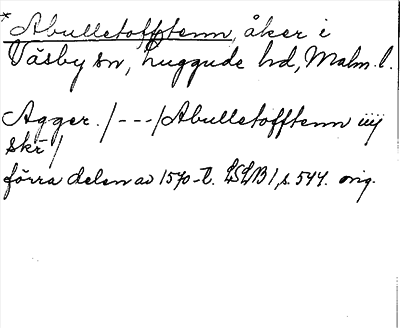 *Abulletofftenn, åker i
Väsby sn, Luggude hd, Malm. l.
Agger. /---/ Abulletofftenn iiij
skr /
förra delen av 1570-t. LSLB 1, s. 544. orig.